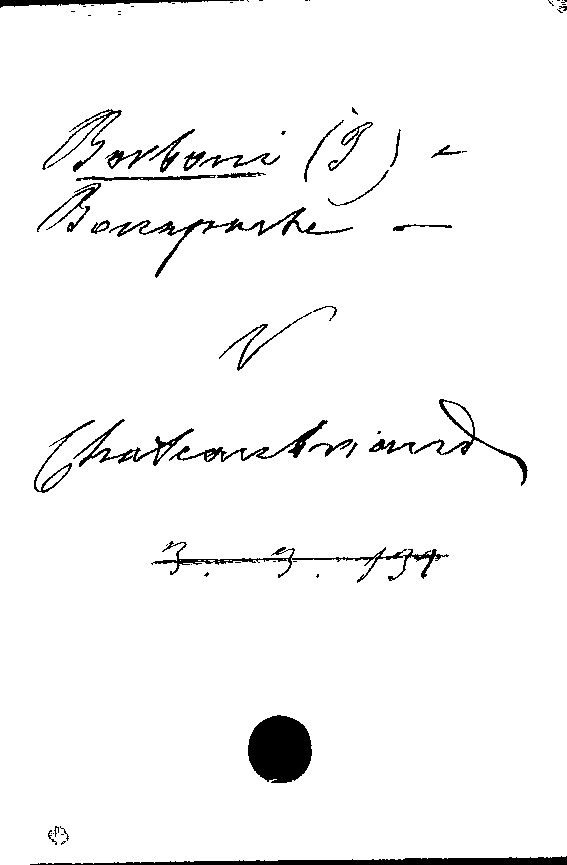 Borboni (I) e
Bonaparte —
V
Chateaubriand
3. 3. 134